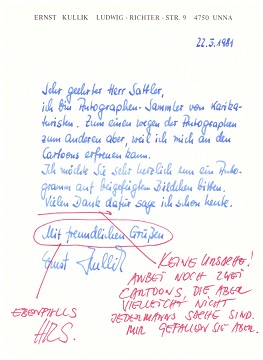 ERNST KULLIK LUDWIG - RICHTER - STR. 9 4750 UNNA
22.3.1981
Sehr geehrter Herr Sattler,
ich bin Autographen-Sammler von Karika-
turisten. Zum einen wegen der Autographen
zum anderen aber, weil ich mich an den
Cartoons erfreuen kann.
Ich möchte Sie sehr herzlich um ein Auto-
gramm auf beigefügten Bildchen bitten.
Vielen Dank dafür sage ich schon heute.
Mit freundlichen Grüßen
Ernst Kullik
KEINE URSACHE!
ANBEI NOCH ZWEI
CARTOONS, DIE ABER
VIELLEICHT NICHT
JEDERMANNS SACHE SIND.
MIR GEFALLEN SIE ABER.
EBENFALLS